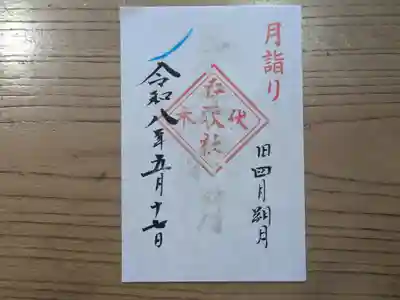 月詣り
旧四月朔月
伏木
令和八年五月十七日